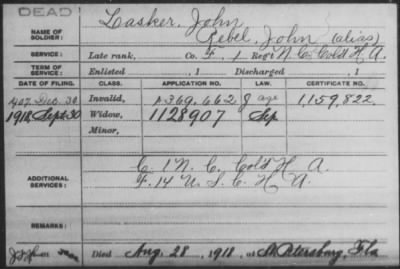 DEAD
NAME OF SOLDIER: Lasker, John
Rebel, John (alias)
SERVICE: Late rank, Co. F, 1 Reg't N. C. Cold H. A.
TERM OF SERVICE: Enlisted , 1 Discharged , 1
DATE OF FILING. CLASS. APPLICATION NO. LAW. CERTIFICATE NO.
1907 Dec. 30 Invalid, 1369.662 J age 1,159,822.
1918, Sept 30 Widow, 1128907 Sep
Minor,
ADDITIONAL SERVICES: C. 1 N. C. Cold H. A.
F. 14 U. S. C. H. A.
REMARKS:
Died Aug. 28, 1918, at St. Petersburg, Fla